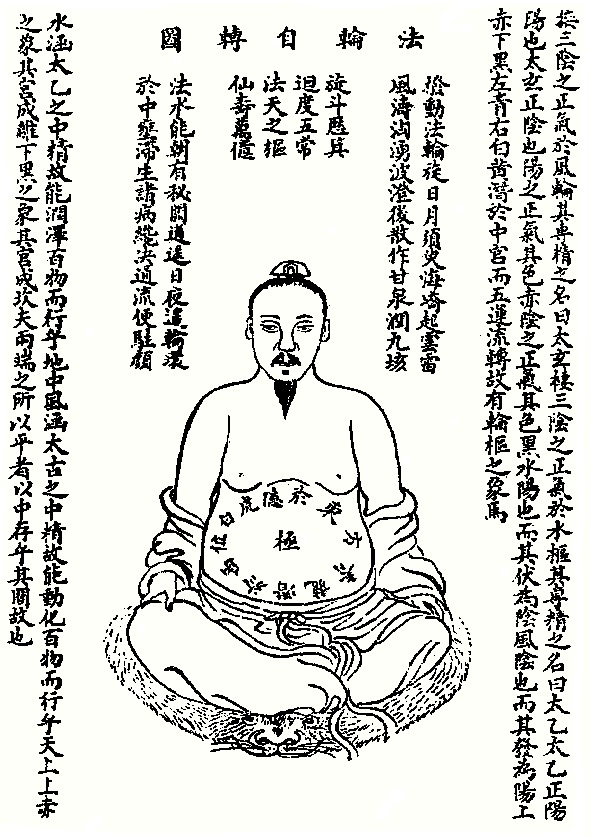 法輪自轉圖
棲三陰之正氣於風輪其專精之名曰太玄棲三陰之正氣於水樞其專精之名曰太乙太乙正陽
陽也太玄正陰也陽之正氣其色赤陰之正氣其色黑水陽也而其伏為陰風陰也而其發為陽上
赤下黑左青右白黃潛於中宮而五運流轉故有輪樞之象焉
撥動法輪旋日月須臾海嶠起雲雷
風濤洶湧波澄後散作甘泉潤九垓
旋斗歷箕
迴度五常
法天之樞
仙壽萬億
法水能朝有秘關逍遙日夜遣輪環
於中壅滯生諸病纔決通流便駐顏
極
水涵太乙之中精故能潤澤百物而行乎地中風涵太古之中精故能動化百物而行乎天上上赤
之象其宮成離下黑之象其宮成坎夫兩端之所以平者以中存乎其間故也